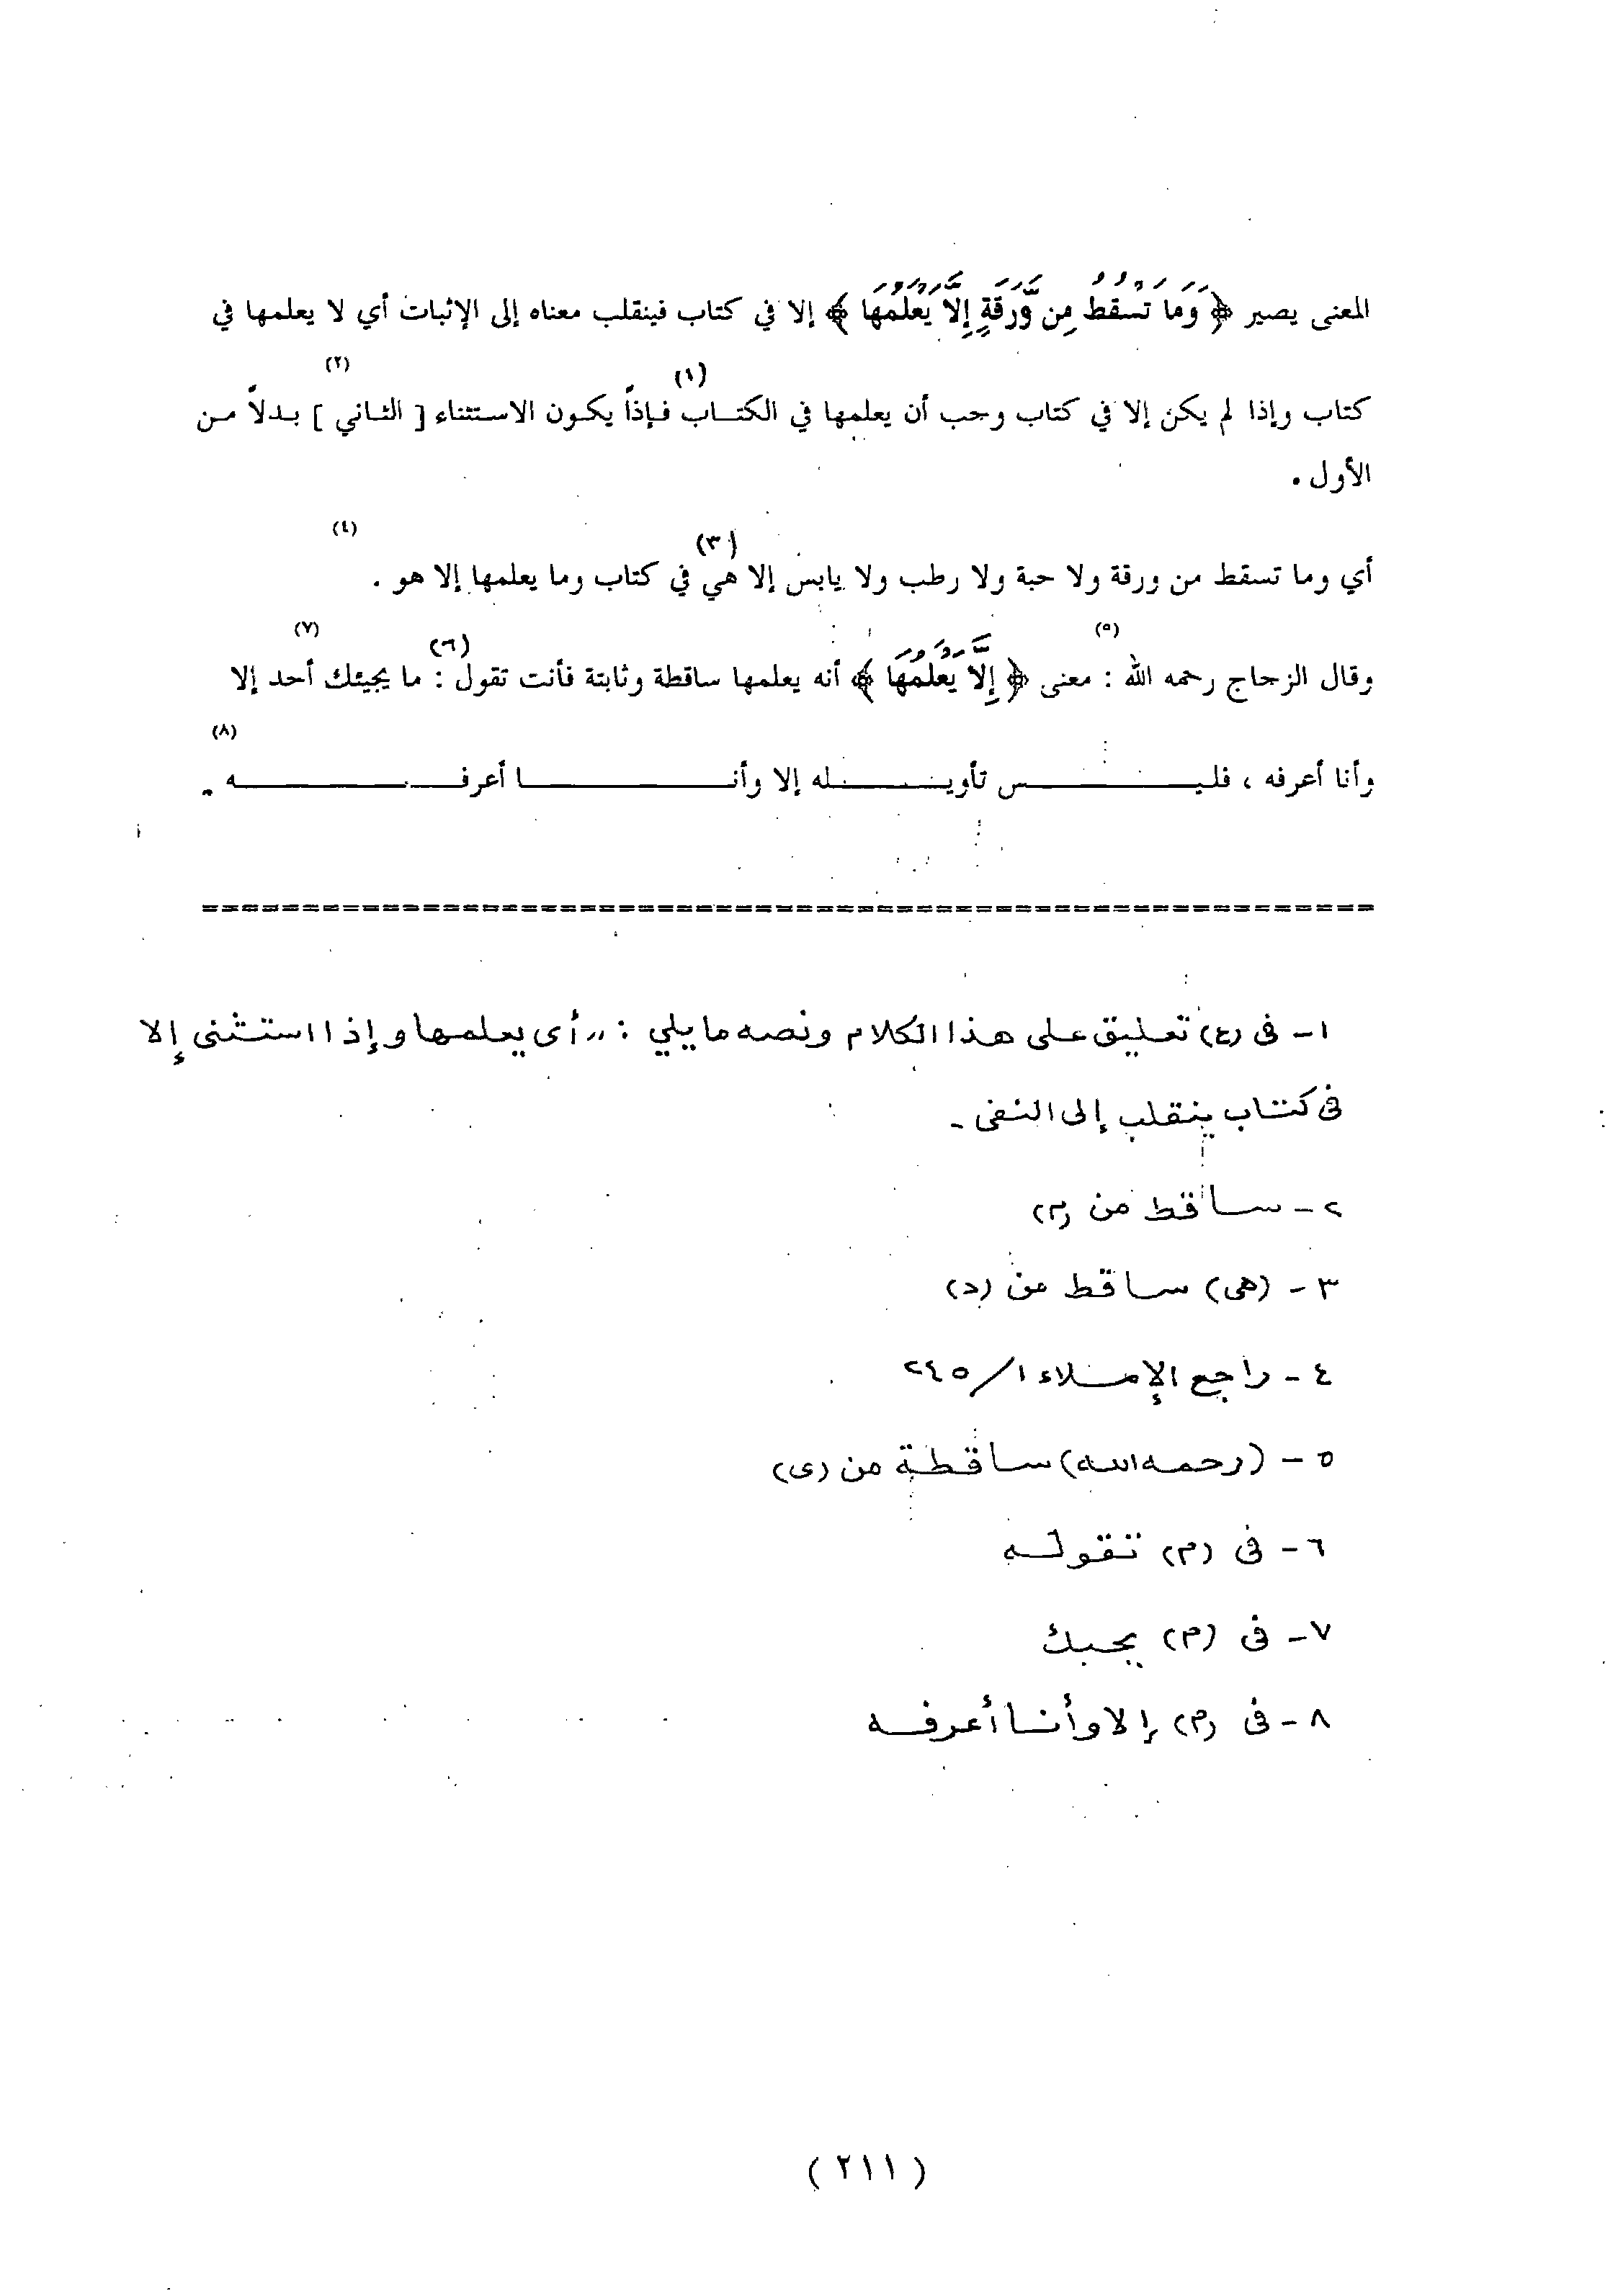 المعنى يصير ﴿ وَمَا تَسْقُطُ مِن وَرَقَةٍ إِلَّا يَعْلَمُهَا ﴾ إلا في كتاب فينقلب معناه إلى الإثبات أي لا يعلمها في
كتاب وإذا لم يكن إلا في كتاب وجب أن يعلمها في الكتـاب (١) فـإذاً يكـون الاسـتثناء [ الثـاني ] (٢) بـدلاً مـن
الأول .
أي وما تسقط من ورقة ولا حبة ولا رطب ولا يابس إلا هي (٣) في كتاب وما يعلمها إلا هو . (٤)
وقال الزجاج رحمه الله (٥) : معنى ﴿ إِلَّا يَعْلَمُهَا ﴾ أنه يعلمها ساقطة وثابتة فأنت تقول (٦) : ما يجيئك (٧) أحد إلا
وأنا أعرفه ، فليـس تأويـله إلا وأنـا أعرفـه . (٨)
١- فى (ع) تعليق على هذا الكلام ونصه ما يلي : ,, أى يعلمها وإذا استثنى إلا
فى كتاب ينقلب إلى النفى -
٢- ساقط من (م)
٣- (هى) ساقط من (د)
٤- راجع الإملاء ١/ ٢٤٥
٥- (رحمه الله) ساقطة من (ى)
٦- فى (م) تقوله
٧- فى (م) يجبك
٨- فى (م) إلا وأنا أعرفه
( ٢١١ )